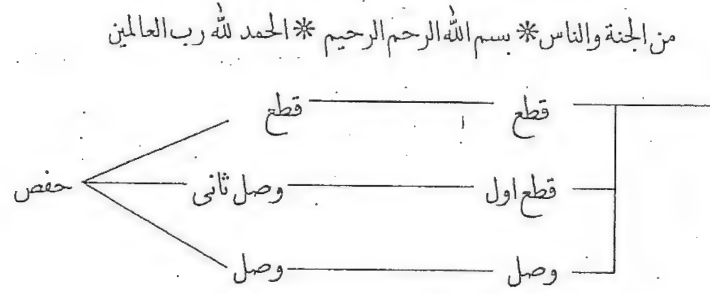 من الجنة والناس * بسم الله الرحم الرحيم * الحمد لله رب العالمين
قطع قطع
قطع اول وصل ثانى حفص
وصل وصل